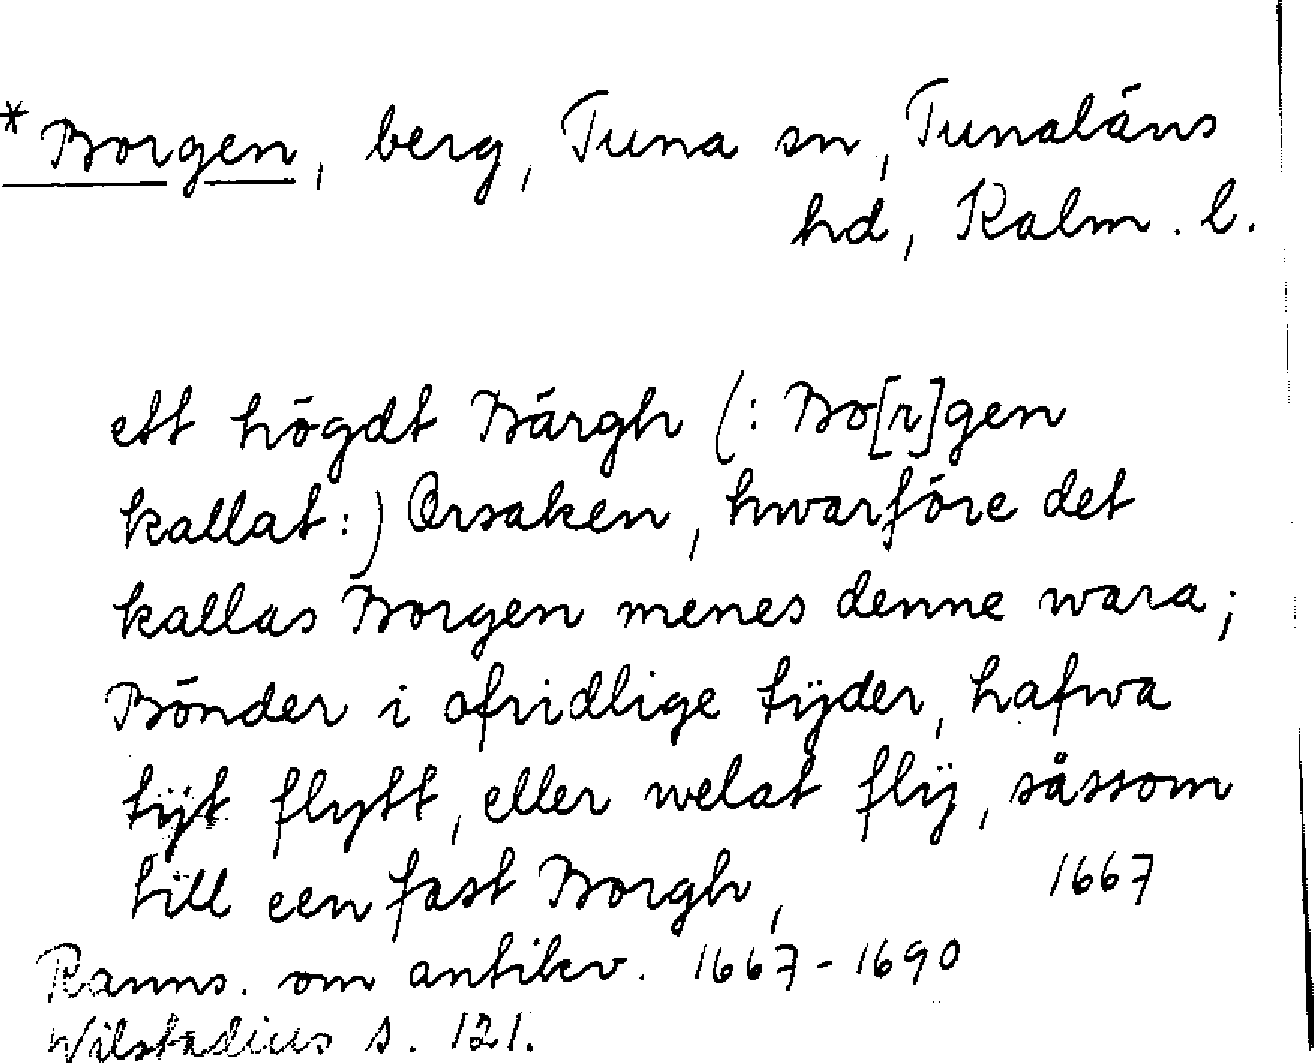 *Borgen, berg, Tuna sn, Tunaläns
hd, Kalm. l.
ett högdt Bärgh (: Bo[r]gen
kallat:) Orsaken, hwarföre det
kallas Borgen menes denne wara;
Bönder i ofridlige tÿder, hafwa
tÿt flytt, eller welat flÿ, såssom
till een fast Borgh, 1667
Ranns. om antikv. 1667-1690
Wilstadius s. 121.